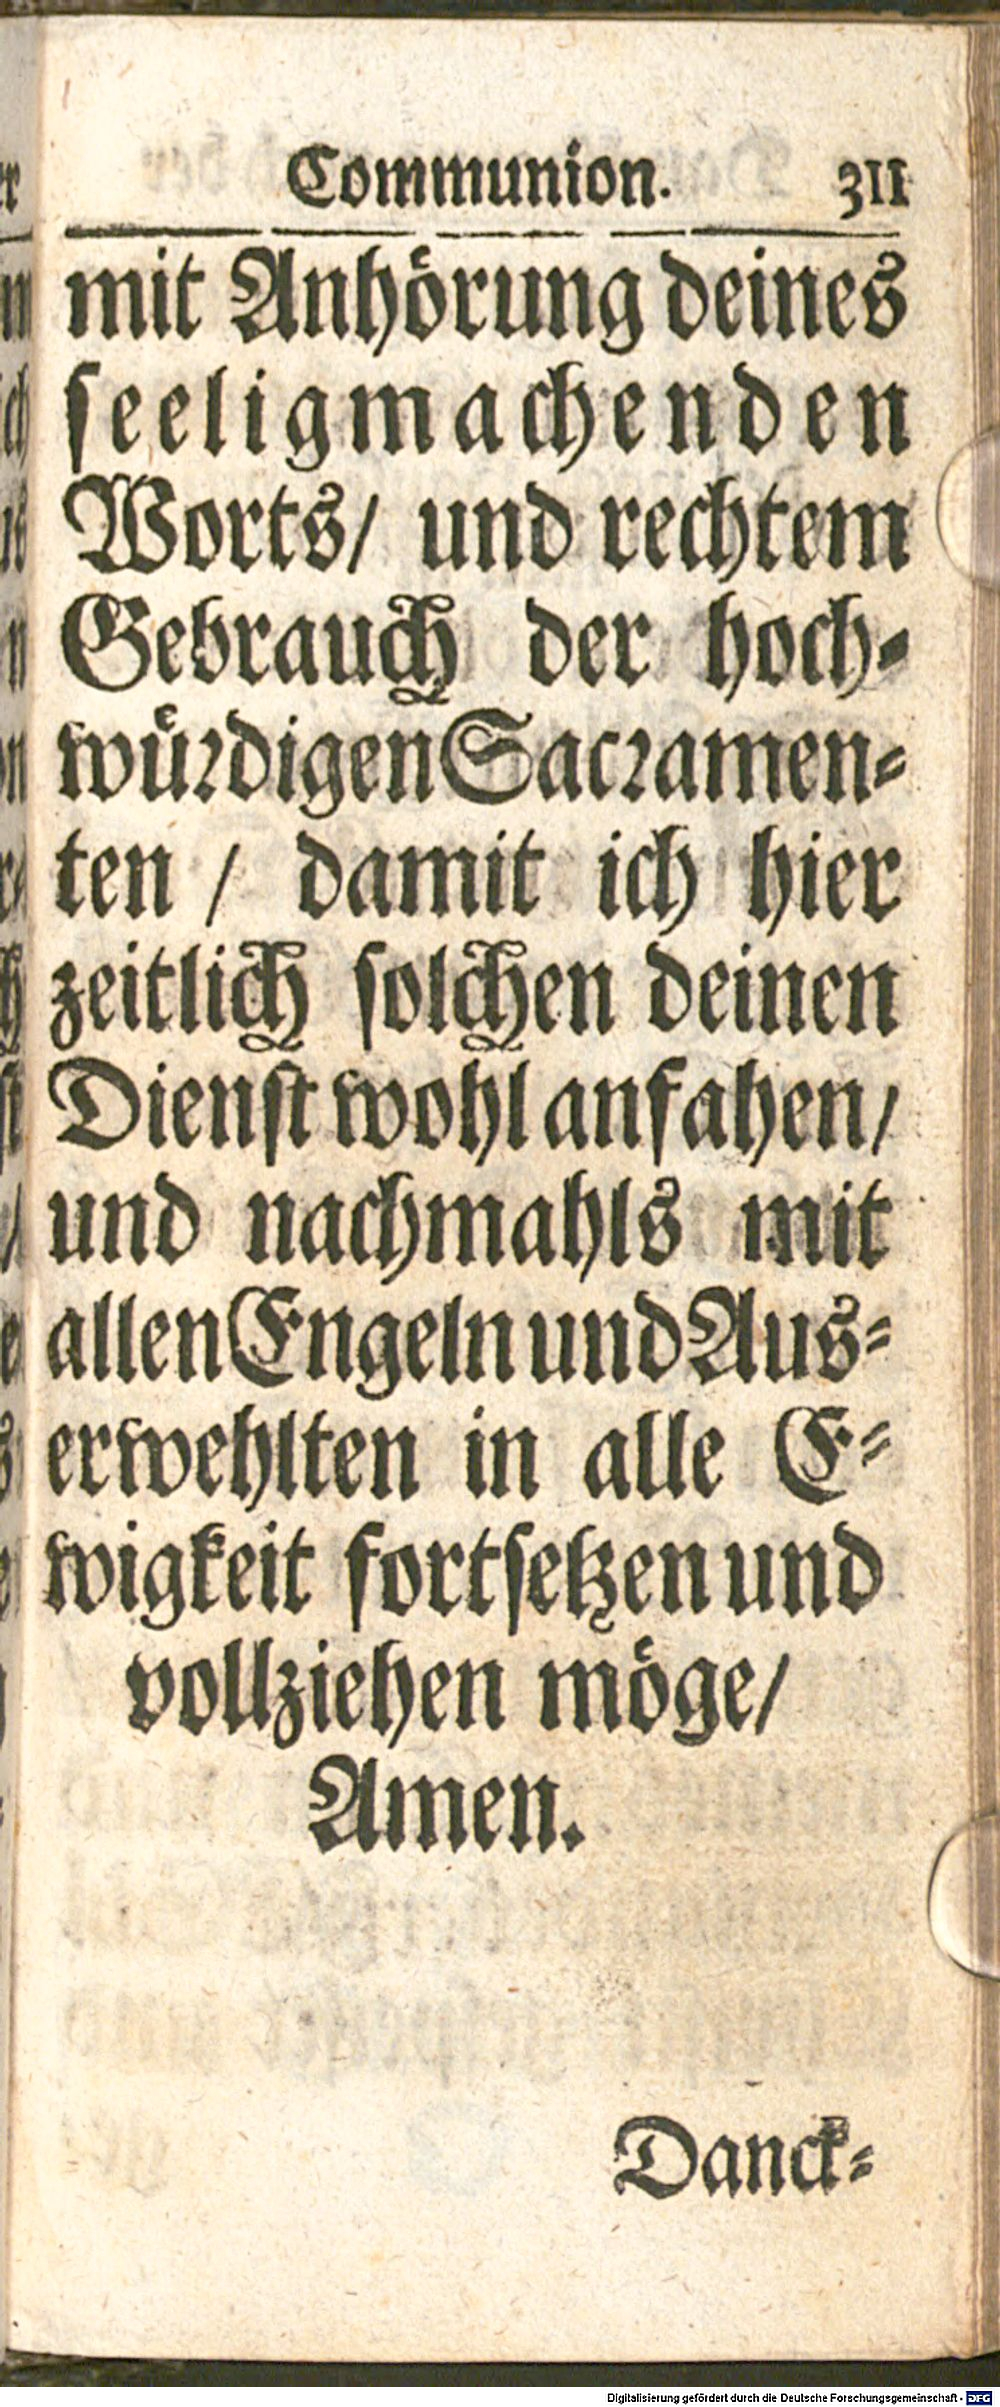 Communion. 311
mit Anhörung deines
seeligmachenden
Worts/ und rechtem
Gebrauch der hoch-
würdigen Sacramen-
ten / damit ich hier
zeitlich solchen deinen
Dienst wohl anfahen/
und nachmahls mit
allen Engeln und Aus-
erwehlten in alle E-
wigkeit fortsetzen und
vollziehen möge/
Amen.
Danck-
Digitalisierung gefördert durch die Deutsche Forschungsgemeinschaft - DFG